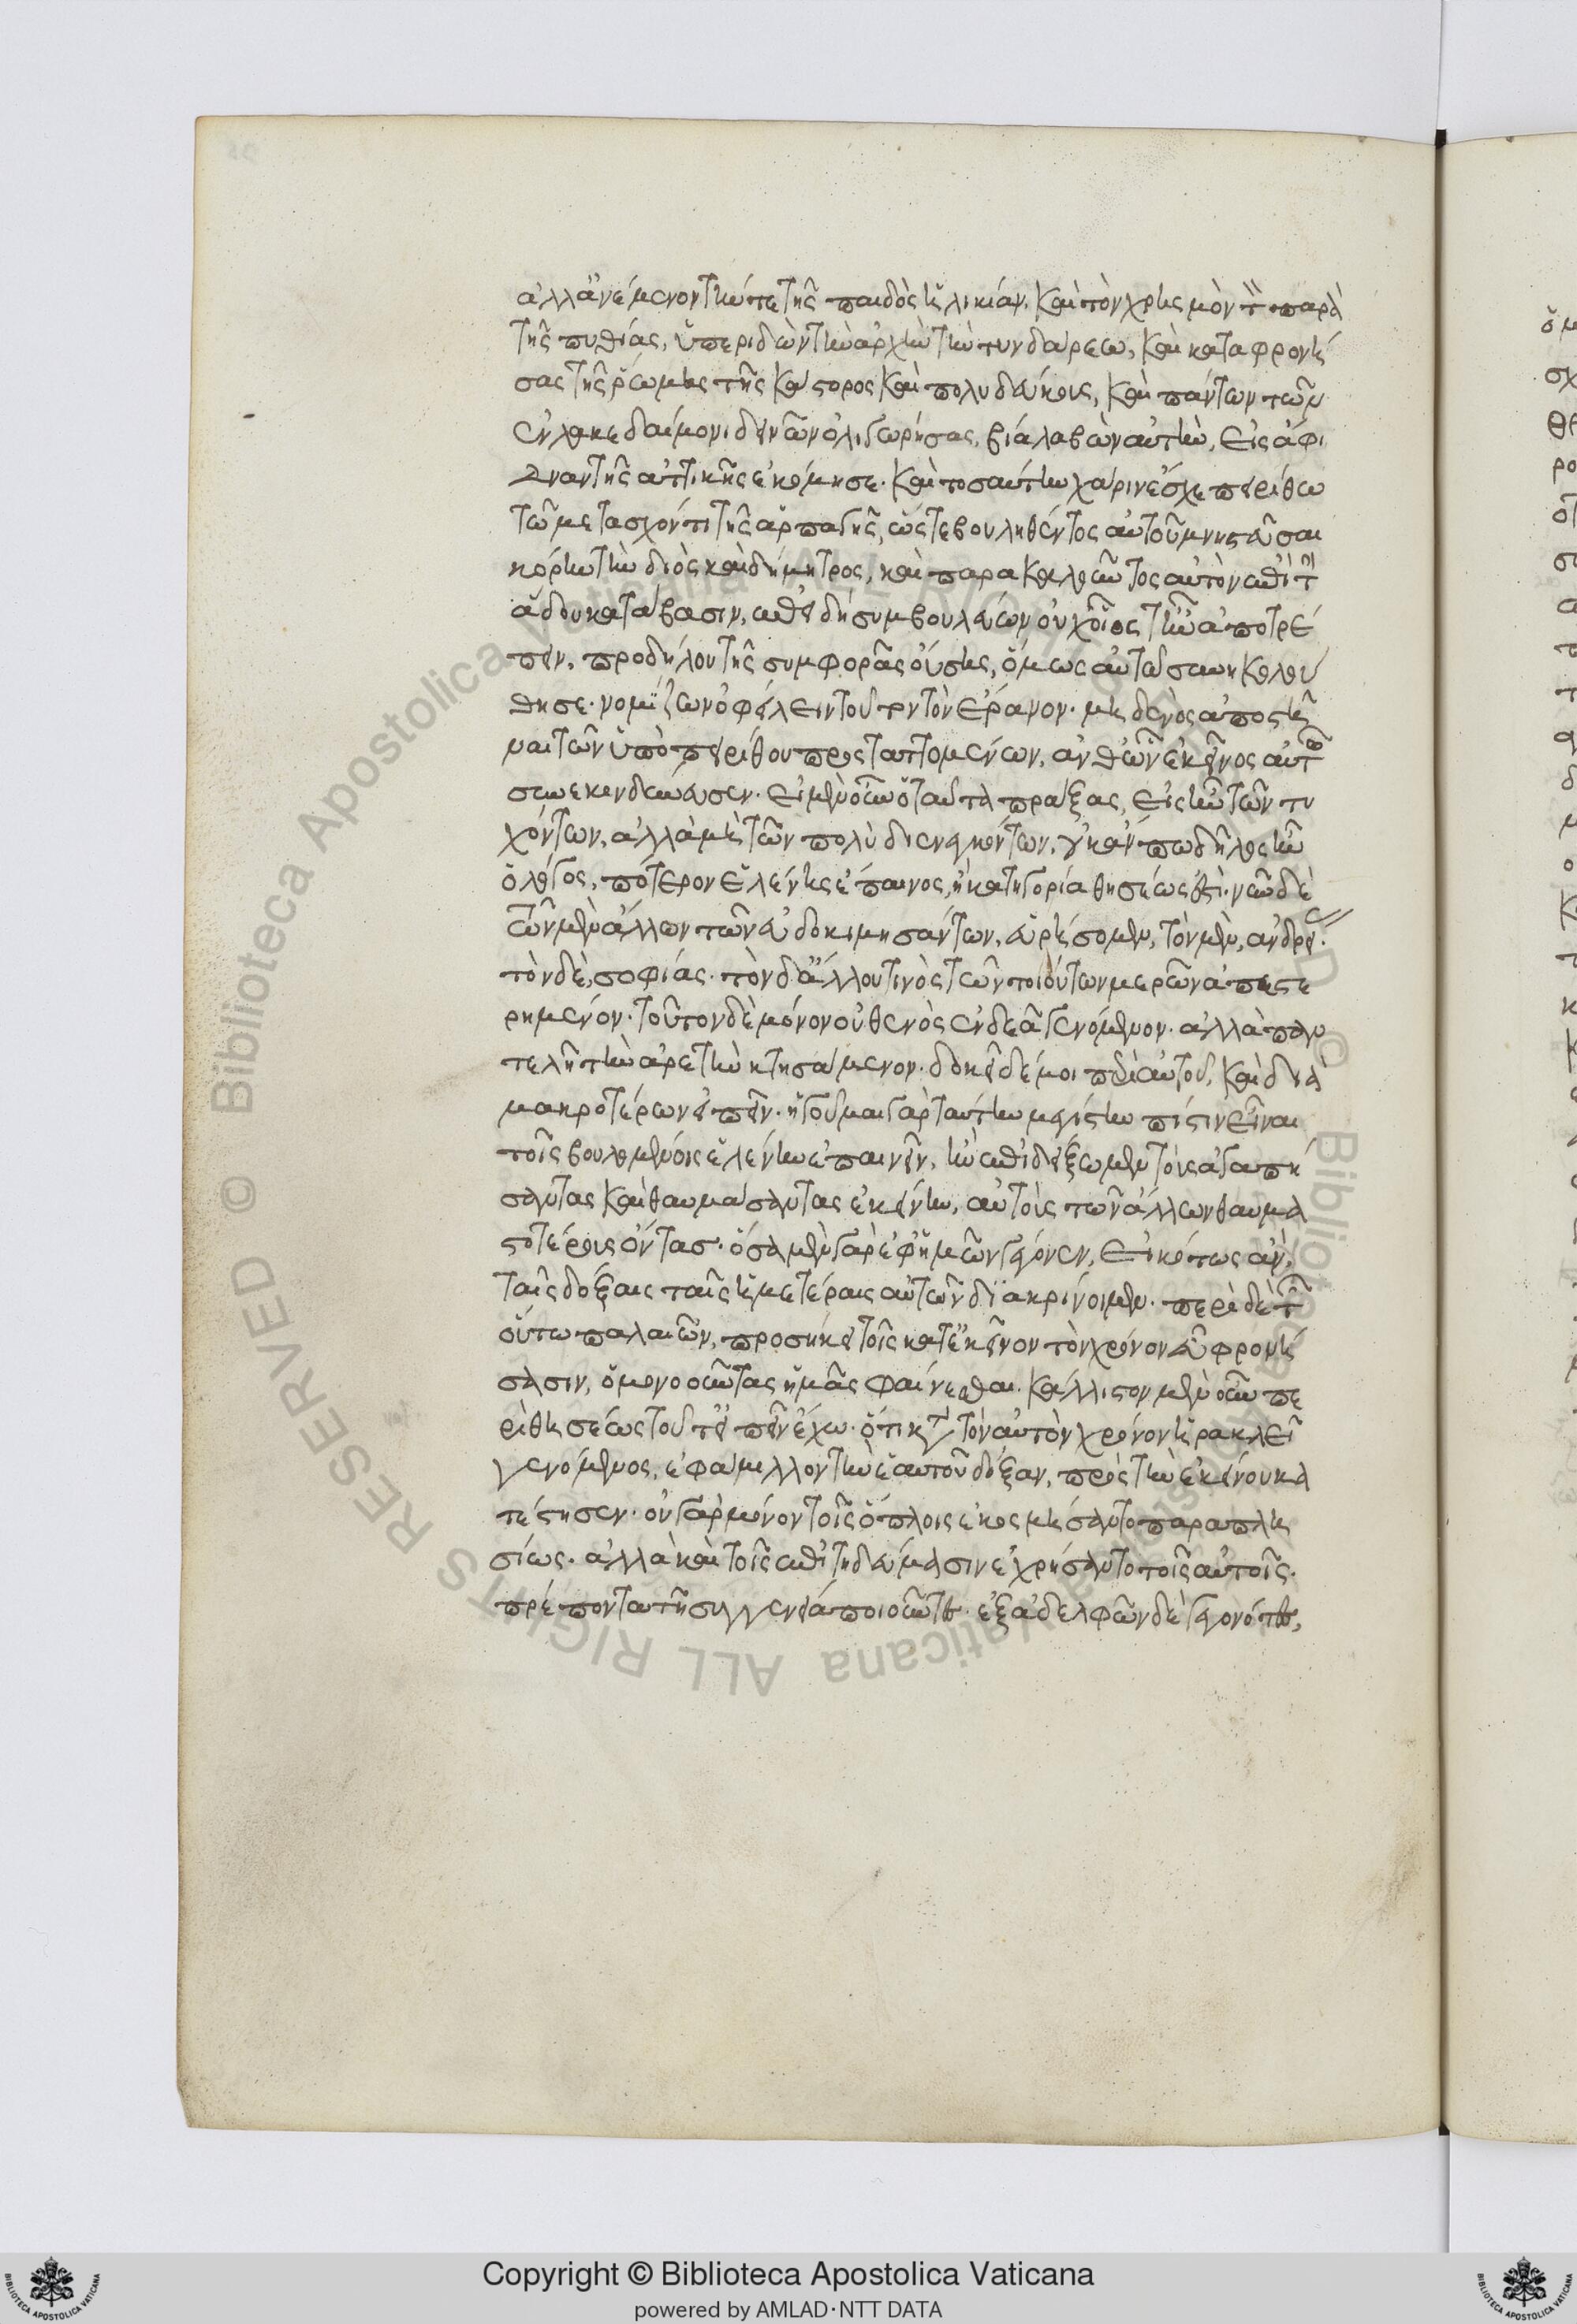 ἀλλ' ἀνέμενον τήν τε τῆς παιδὸς ἡλικίαν, καὶ τὸν χρησμὸν τὸν παρὰ
τῆς πυθίας, ὑπεριδὼν τὴν ἀρχὴν τὴν τυνδάρεω, καὶ καταφρονή
σας τῆς ῥώμης τῆς κάστορος καὶ πολυδεύκους, καὶ πάντων τῶν
ἐν λακεδαίμονι δεινῶν ὀλιγωρήσας, βίᾳ λαβὼν αὐτὴν, εἰς ἄφι
δναν τῆς ἀττικῆς ἐκόμισε. καὶ τοσαύτην χάριν ἔσχε πειρίθῳ
τῷ μετασχόντι τῆς ἁρπαγῆς, ὥστε βουληθέντος αὐτοῦ μνηστεῦσαι
κόρην τὴν διὸς καὶ δήμητρος, καὶ παρακαλοῦντος αὐτὸν ἐπὶ τὴν
ἅδου κατάβασιν, ἐπειδὴ συμβουλεύων οὐχ οἷός τ' ἦν ἀποτρέ
πειν, προδήλου τῆς συμφορᾶς οὔσης, ὅμως αὐτῷ συνηκολού
θησε. νομίζων ὀφείλειν τοῦτον τὸν ἔρανον. μηδενὸς ἀποστῆ
ναι τῶν ὑπὸ πειρίθου προσταττομένων, ἀνθ' ὧν ἐκεῖνος αὐτῷ
συνεκινδύνευσεν. εἰ μὲν οὖν ὁ ταῦτα πράξας, εἷς ἦν τῶν τυ
χόντων, ἀλλὰ μὴ τῶν πολὺ διενεγκόντων, οὐκ ἄν πω δῆλος ἦν
ὁ λόγος, πότερον ἑλένης ἔπαινος, ἢ κατηγορία θησέως ἐστί. νῦν δὲ
τῶν μὲν ἄλλων τῶν εὐδοκιμησάντων, εὑρήσομεν, τὸν μὲν, ἀνδρείας.
τὸν δὲ, σοφίας. τὸν δ' ἄλλου τινὸς τῶν τοιούτων μερῶν ἀπεστε
ρημένον. τοῦτον δὲ μόνον οὐθενὸς ἐνδεᾶ γενόμενον. ἀλλὰ παν
τελῆ τὴν ἀρετὴν κτησάμενον. δοκεῖ δέ μοι περὶ αὐτοῦ, καὶ διὰ
μακροτέρων εἰπεῖν. ἡγοῦμαι γὰρ ταύτην μεγίστην πίστιν εἶναι
τοῖς βουλομένοις ἑλένην ἐπαινεῖν, ἢν ἐπιδείξωμεν τοὺς ἀγαπή
σαντας καὶ θαυμάσαντας ἐκείνην, αὐτοὺς τῶν ἄλλων θαυμα
στοτέρους ὄντας. ὅσα μὲν γὰρ ἐφ' ἡμῶν γέγονεν, εἰκότως ἂν,
ταῖς δόξαις ταῖς ἡμετέραις αὐτῶν διακρίνοιμεν. περὶ δὲ τῶν
οὕτω παλαιῶν, προσήκει τοῖς κατ' ἐκεῖνον τὸν χρόνον εὖ φρονή
σασιν, ὁμονοοῦντας ἡμᾶς φαίνεσθαι. κάλλιστον μὲν οὖν πε
ρὶ θησέως τοῦτ' εἰπεῖν ἔχω. ὅτι κατὰ τὸν αὐτὸν χρόνον ἡρακλεῖ
γενόμενος, ἐφάμιλλον τὴν ἑαυτοῦ δόξαν, πρὸς τὴν ἐκείνου κα
τέστησεν. οὐ γὰρ μόνον τοῖς ὅπλοις ἐκοσμήσαντο παραπλη
σίως. ἀλλὰ καὶ τοῖς ἐπιτηδεύμασιν ἐχρήσαντο τοῖς αὐτοῖς.
πρέποντα τῇ συγγενείᾳ ποιοῦντες. ἐξ ἀδελφῶν δὲ γεγονότες,